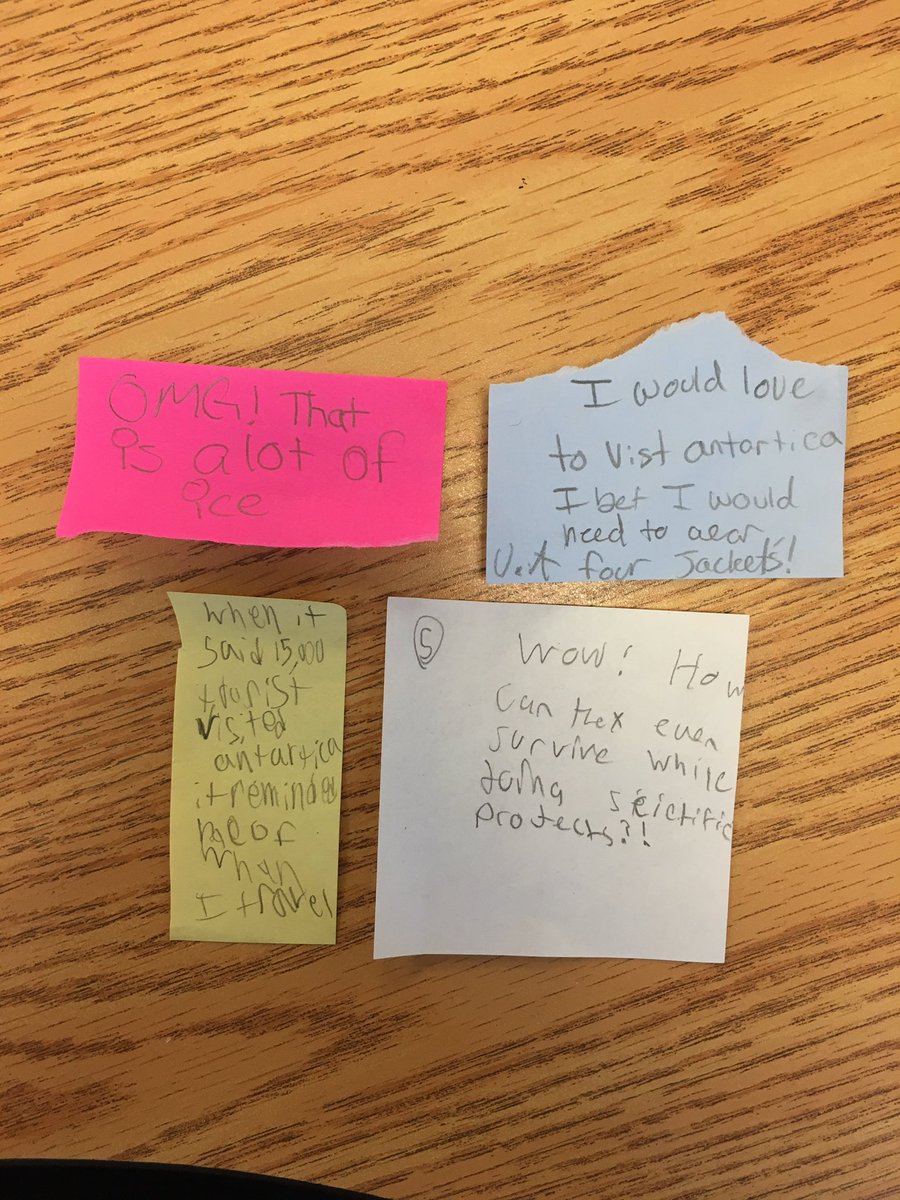 OMG! That
is alot of
ice
I would love
to vist antartica
I bet I would
need to
four Jackets!
when it
said 15,000
tourist
visited
antartica
it reminded
me of
when
I travel
5
Wow! How
can they even
survive while
doing
protects?!